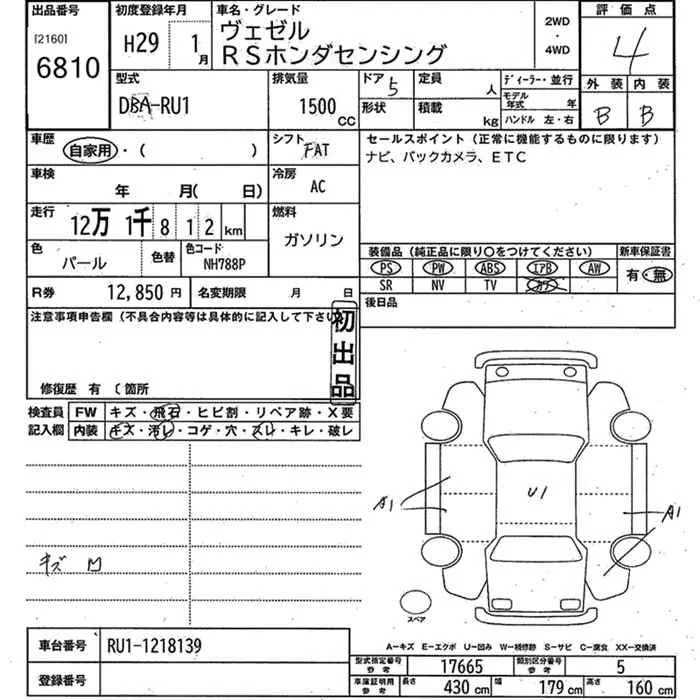 出品番号 初度登録年月 車名・グレード 評価点
[2160]
6810 H29 1月 ヴェゼル 2WD・4WD 4
RSホンダセンシング
型式 排気量 ドア 5 定員 人 ディーラー・並行 外装 内装
DBA-RU1 1500CC 形状 積載 kg モデル年式 年 B B
ハンドル 左・右
車歴 自家用・( ) シフト FAT セールスポイント(正常に機能するものに限ります)
ナビ、バックカメラ、ETC
車検 年 月( 日) 冷房 AC
走行 12万 1千 812km 燃料 ガソリン
色 パール 色替 色コード NH788P 装備品(純正品に限り○をつけてください) 新車保証書
PS PW ABS エアB AW 有・無
SR NV TV カワ
R券 12,850円 名変期限 月 日 後日品
注意事項申告欄(不具合内容等は具体的に記入して下さい)
初出品
修復歴 有 〔箇所
検査員 FW キズ・飛石・ヒビ割・リペア跡・X要
記入欄 内装 キズ・汚レ・コゲ・穴・スレ・キレ・破レ
U1
A1 A1
キズ
スペア
車台番号 RU1-1218139
登録番号
A—キズ E—エクボ U—凹み W—補修跡 S—サビ C—腐食 XX—交換済
型式指定番号 参考 17665 類別区分番号 参考 5
車庫証明用 参考 長さ 430cm 幅 179cm 高さ 160cm